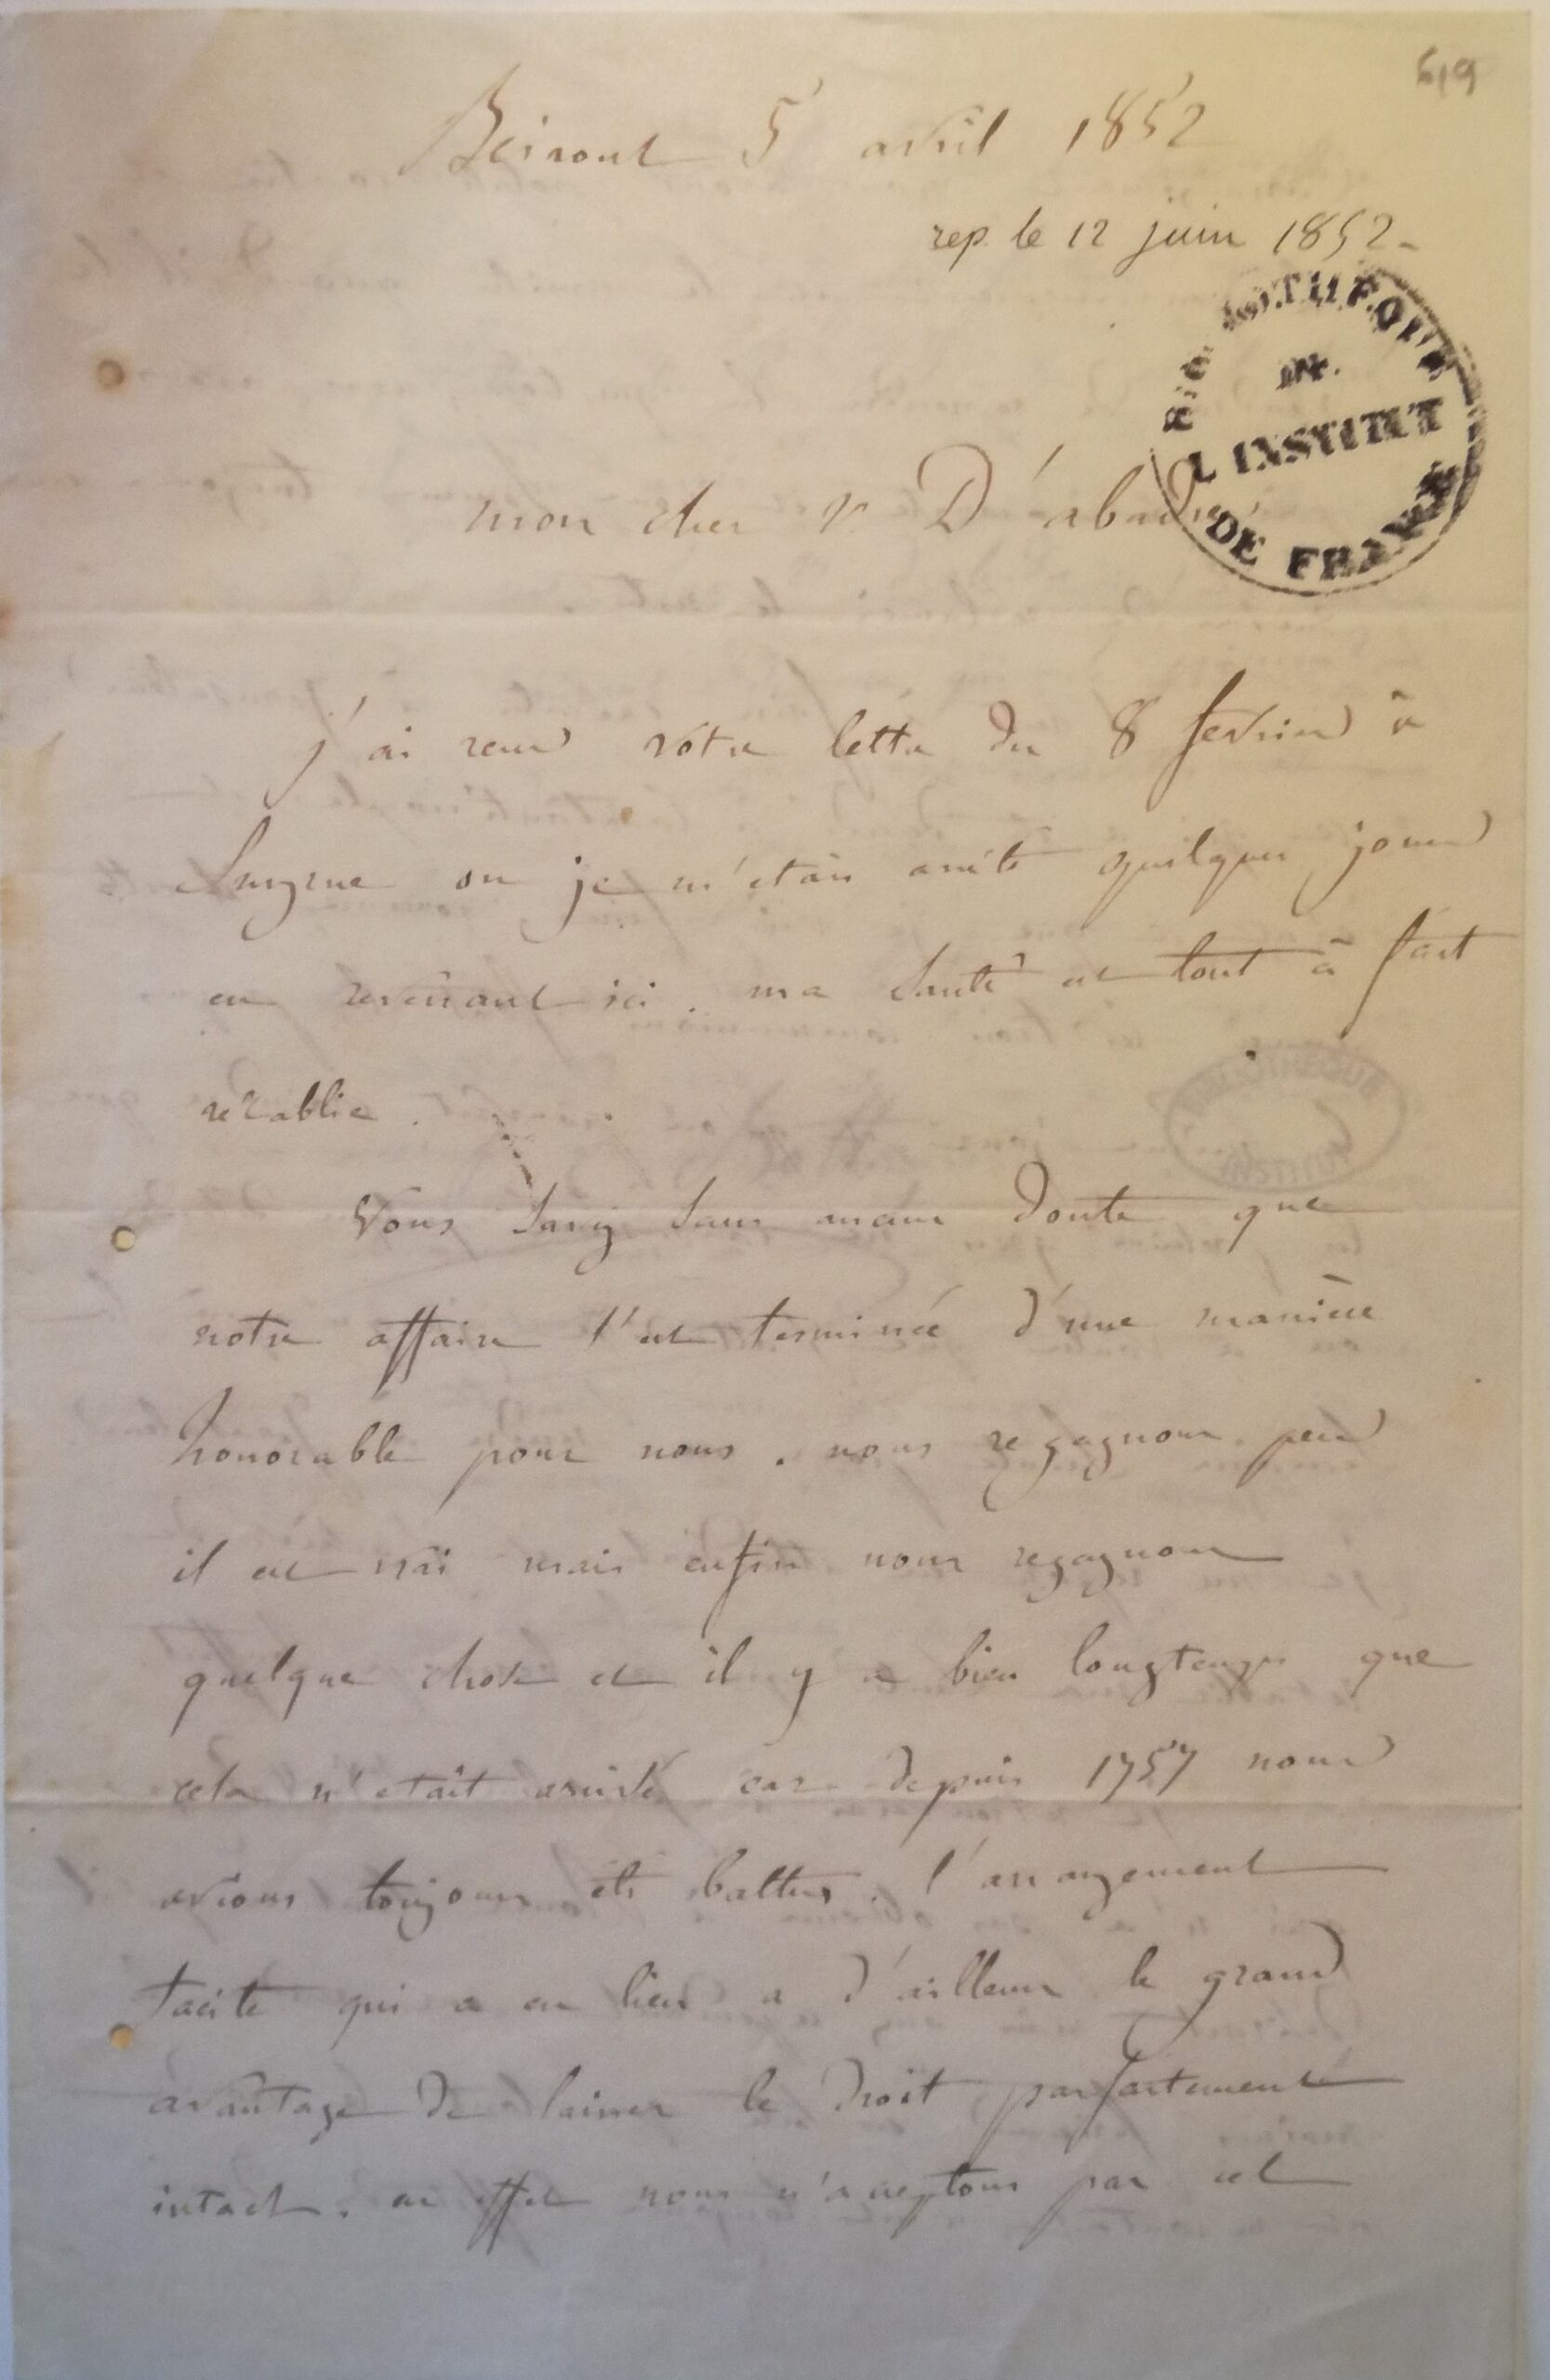 619
Beirout 5 avril 1852
rep. le 12 juin 1852.
BIBLIOTHEQUE
DE
L INSTITUT
DE FRANCE
mon cher D'abadie
j'ai recu votre lettre du 8 fevrier à
Smyrne ou je m'etais arrêté quelques jours
en revenant ici. ma santé est tout à fait
rétablie.
Vous savez sans aucun doute que
notre affaire s'est terminée d'une manière
honorable pour nous. nous regagnons peu
il est vrai mais enfin nous regagnons
quelque chose et il y a bien longtemps que
cela n'etait arrivé car depuis 1757 nous
avions toujours été battus. l'arrangement
tacite qui a eu lieu a d'ailleurs le grand
avantage de laisser le droit parfaitement
intact. en effet nous n'acceptons pas cet